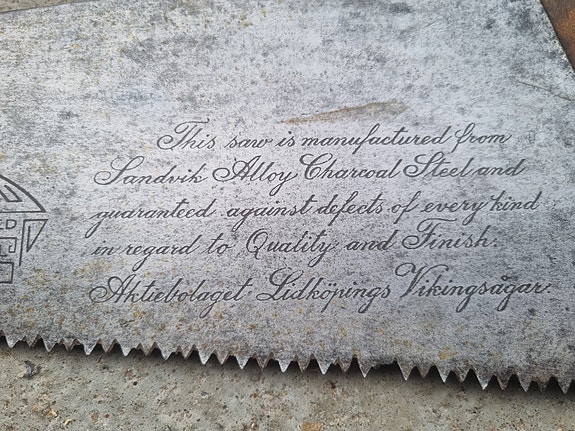 This saw is manufactured from
Sandvik Alloy Charcoal Steel and
guaranteed against defects of every kind
in regard to Quality and Finish.
Aktiebolaget Lidköpings Vikingsågar.